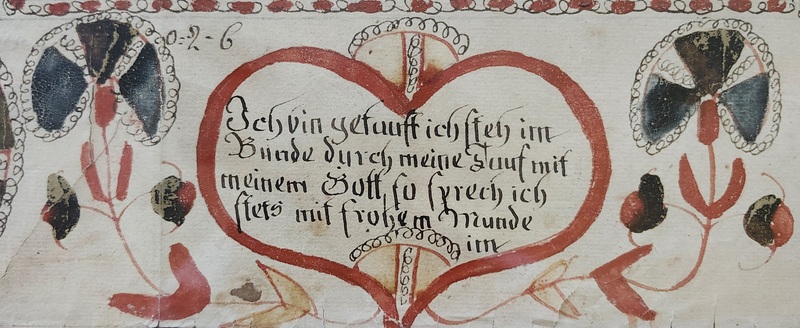 0-2-6
Ich bin getauft ich steh im
Bunde durch meine Tauf mit
meinem Gott, so sprech ich
stets mit frohem Munde
im